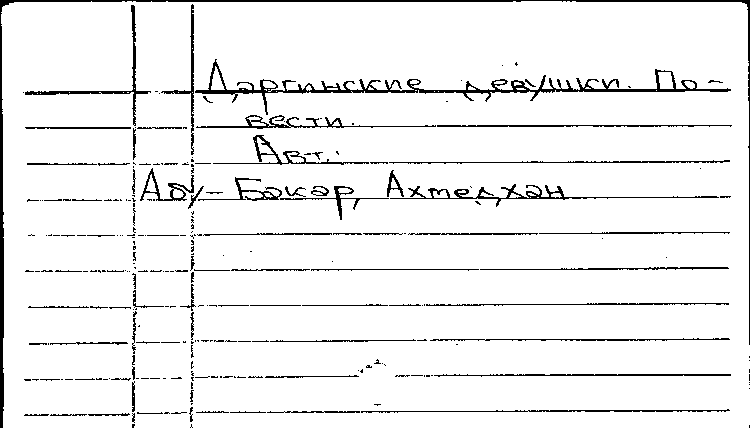 Даргинские девушки. По-
вести.
Авт.:
Абу-Бакар, Ахмедхан